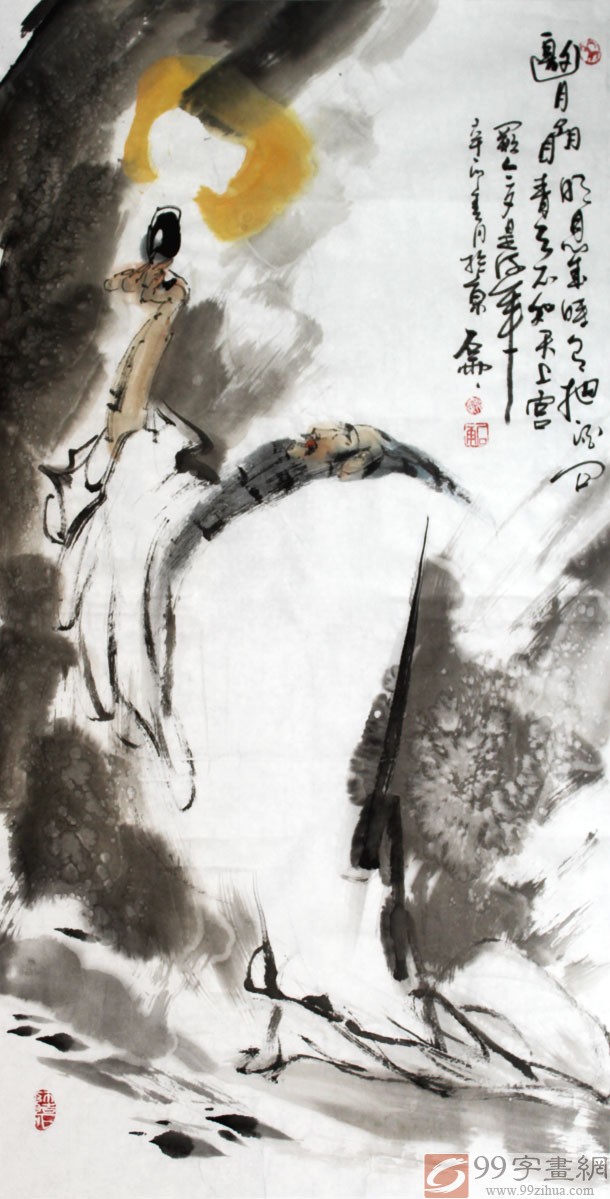 邀月圖
明月幾時有把酒问
青天不知天上宫
闕今夕是何年
辛卯春月於京
99字畫網
www.99zihua.com